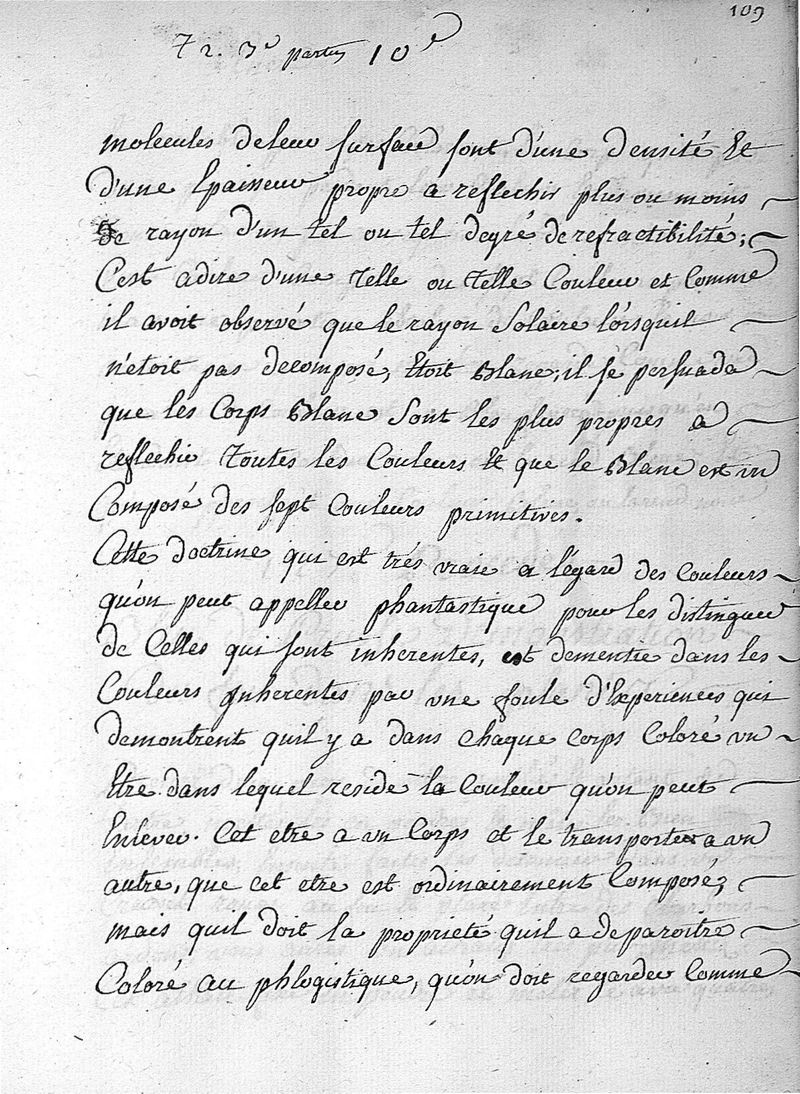 109
72. 3e partie 10e
molecules de leur surface sont d'une densité Et
d'une Epaisseur propre a reflechir plus ou moins
de rayon d'un tel ou tel degré de refractibilité;
C'est adire d'une Telle ou Telle Couleur et Comme
il avoit observé que le rayon Solaire lorsquil
n'etoit pas decomposé, Etoit Blanc, il se persuada
que les Corps Blanc Sont les plus propres a
reflechir Toutes les Couleurs Et que le Blanc est un
Composé des sept Couleurs primitives.
Cette doctrine qui est trés vraie a l'égard des Couleurs
qu'on peut appeller phantastique pour les distinguer
de Celles qui sont inherentes, est dementie dans les
Couleurs Inherentes par une foule d'Experiences qui
demontrent quil y a dans chaque corps Coloré un
Etre dans lequel reside la Couleur qu'on peut
Enlever. Cet etre a un Corps et le transporter a un
autre, que cet etre est ordinairement Composé,
mais quil doit la propriété quil a de paroitre
Coloré au phlogistique, qu'on doit regarder Comme